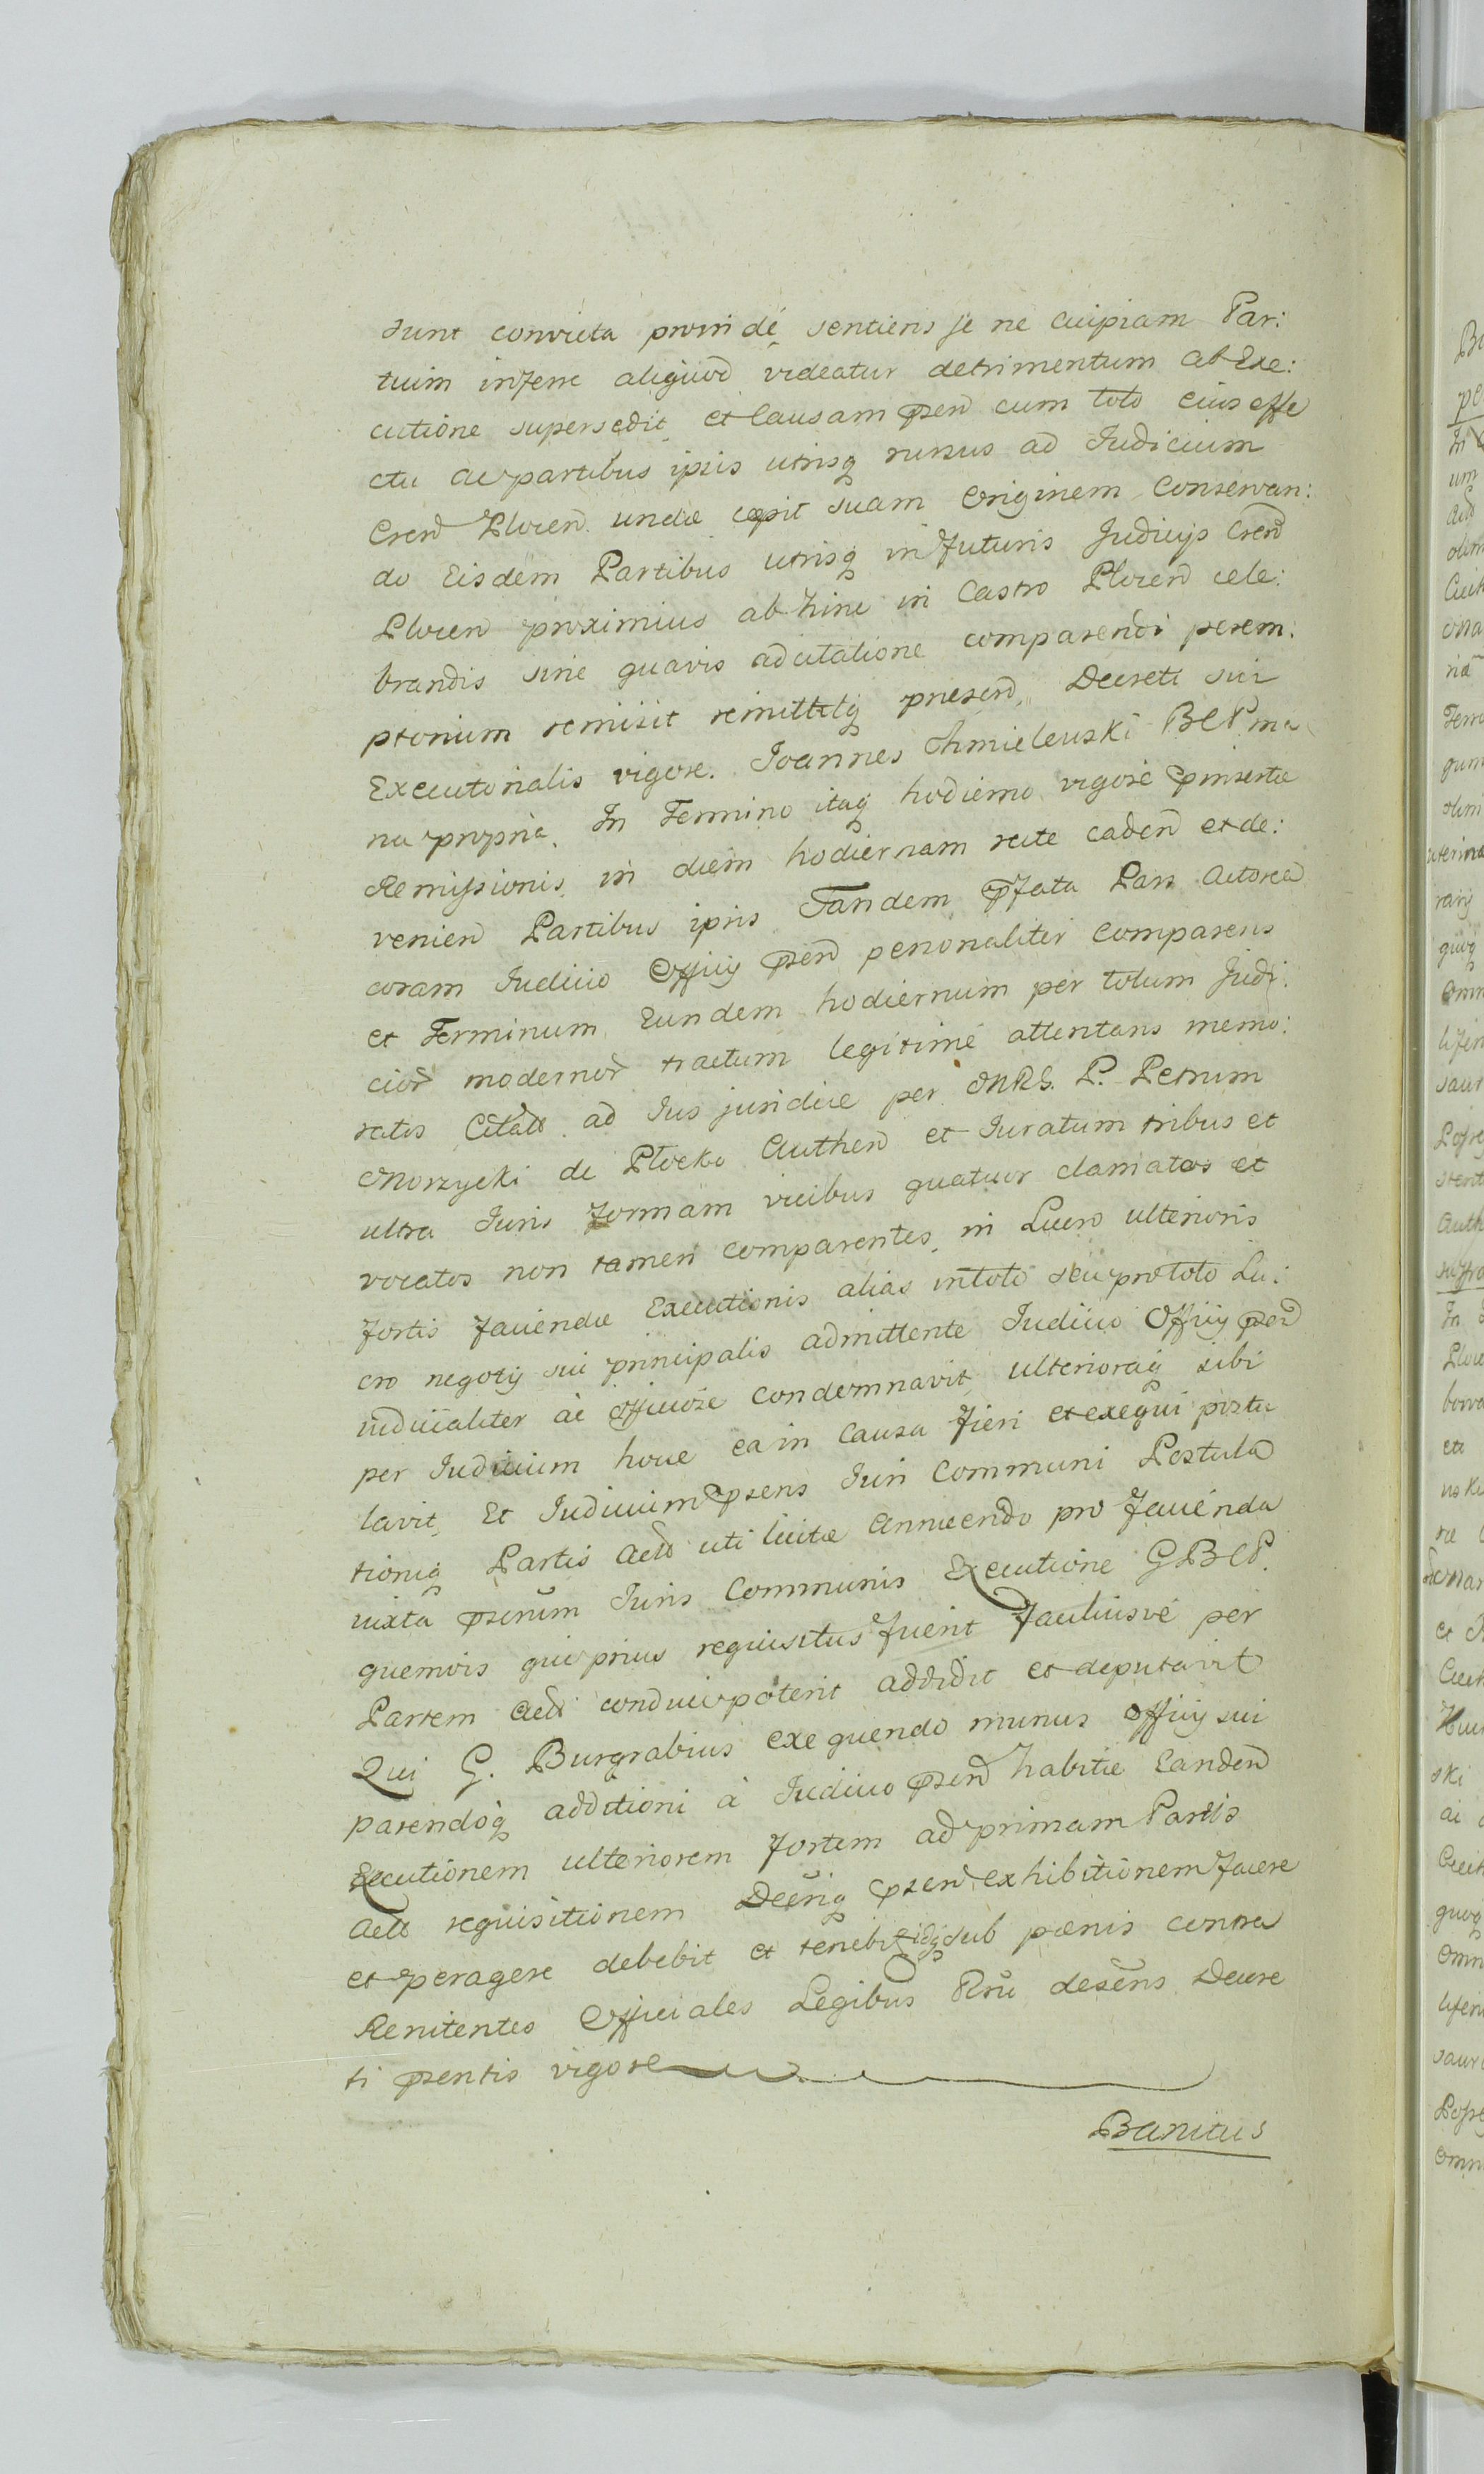 sunt convicta proindè sentiens se ne cuipiam Par:
tium inferre aliquod videatur detrimentum ab Exe:
cutione supersedit et Causam psen cum toto eius effe
ctu ac partibus ipsis utrisq rursus ad Judicium
Cren Plocen unde cepit suam Originem Conservan:
do Eisdem Partibus utrisq in futuris Judicijs Cren
Plocen proximius ab hinc in Castro Plocen cele:
brandis sine quavis adcitatione comparendi perem:
ptorium remisit remittitq presen, Decreti sui
Executorialis vigore. Joannes Chmielewski BCP ma
nu propria. In Termino itaq hodierno vigore pinsertæ
Remissionis in diem hodiernam recte caden et de:
venien Partibus ipsis Tandem pfata Pars Actorea
coram Judicio Officij psen personaliter Comparens
et Terminum Eundem hodiernum per totum Judi:
cior modernor tractum legitimè attentans memo:
ratos Citatos ad Jus juridice per MRS. P. Petrum
Morzycki de Płocko Authen et Juratum tribus et
ultra Juris formam vicibus quatuor clamatos et
vocatos non tamen comparentes, in Lucro ulterioris
fortis faciendæ Executionis alias in toto seu pro toto Lu:
cro negotij sui principalis admittente Judicio Officij psen
iudicialiter ac officiose Condemnavit ulterioraq sibi
per Judicium hocce ea in Causa fieri et exequi postu
lavit, Et Judicium psens Juri Communi Postula
tioniq Partis Acto uti licitæ Annuendo pro facienda
iuxta psrtum Juris Communis Executione GBCP.
quemvis qui prius requisitus fuerit faciliusvè per
Partem Acto conduci poterit addidit et deputavit
Qui G. Burgrabius exequendo munus officij sui
parendoq additioni à Judicio psen habitæ Eanden
Executionem ulteriorem fortem ad primam Partis
Acto requisitionem Decriq psen exhibitionem facere
et peragere debebit et tenebit idq sub pœnis contra
Renitentes Officiales Legibus Rni descris Decre
ti psentis vigore
Banitus